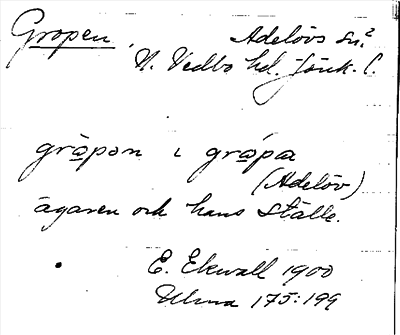 Gropen, Adelövs sn?
N. Vedbo hd. Jönk. l.
gråpən ɩ gråpa
(Adelöv)
ägaren och hans ställe.
E. Ekwall 1900
Ulma 175:199